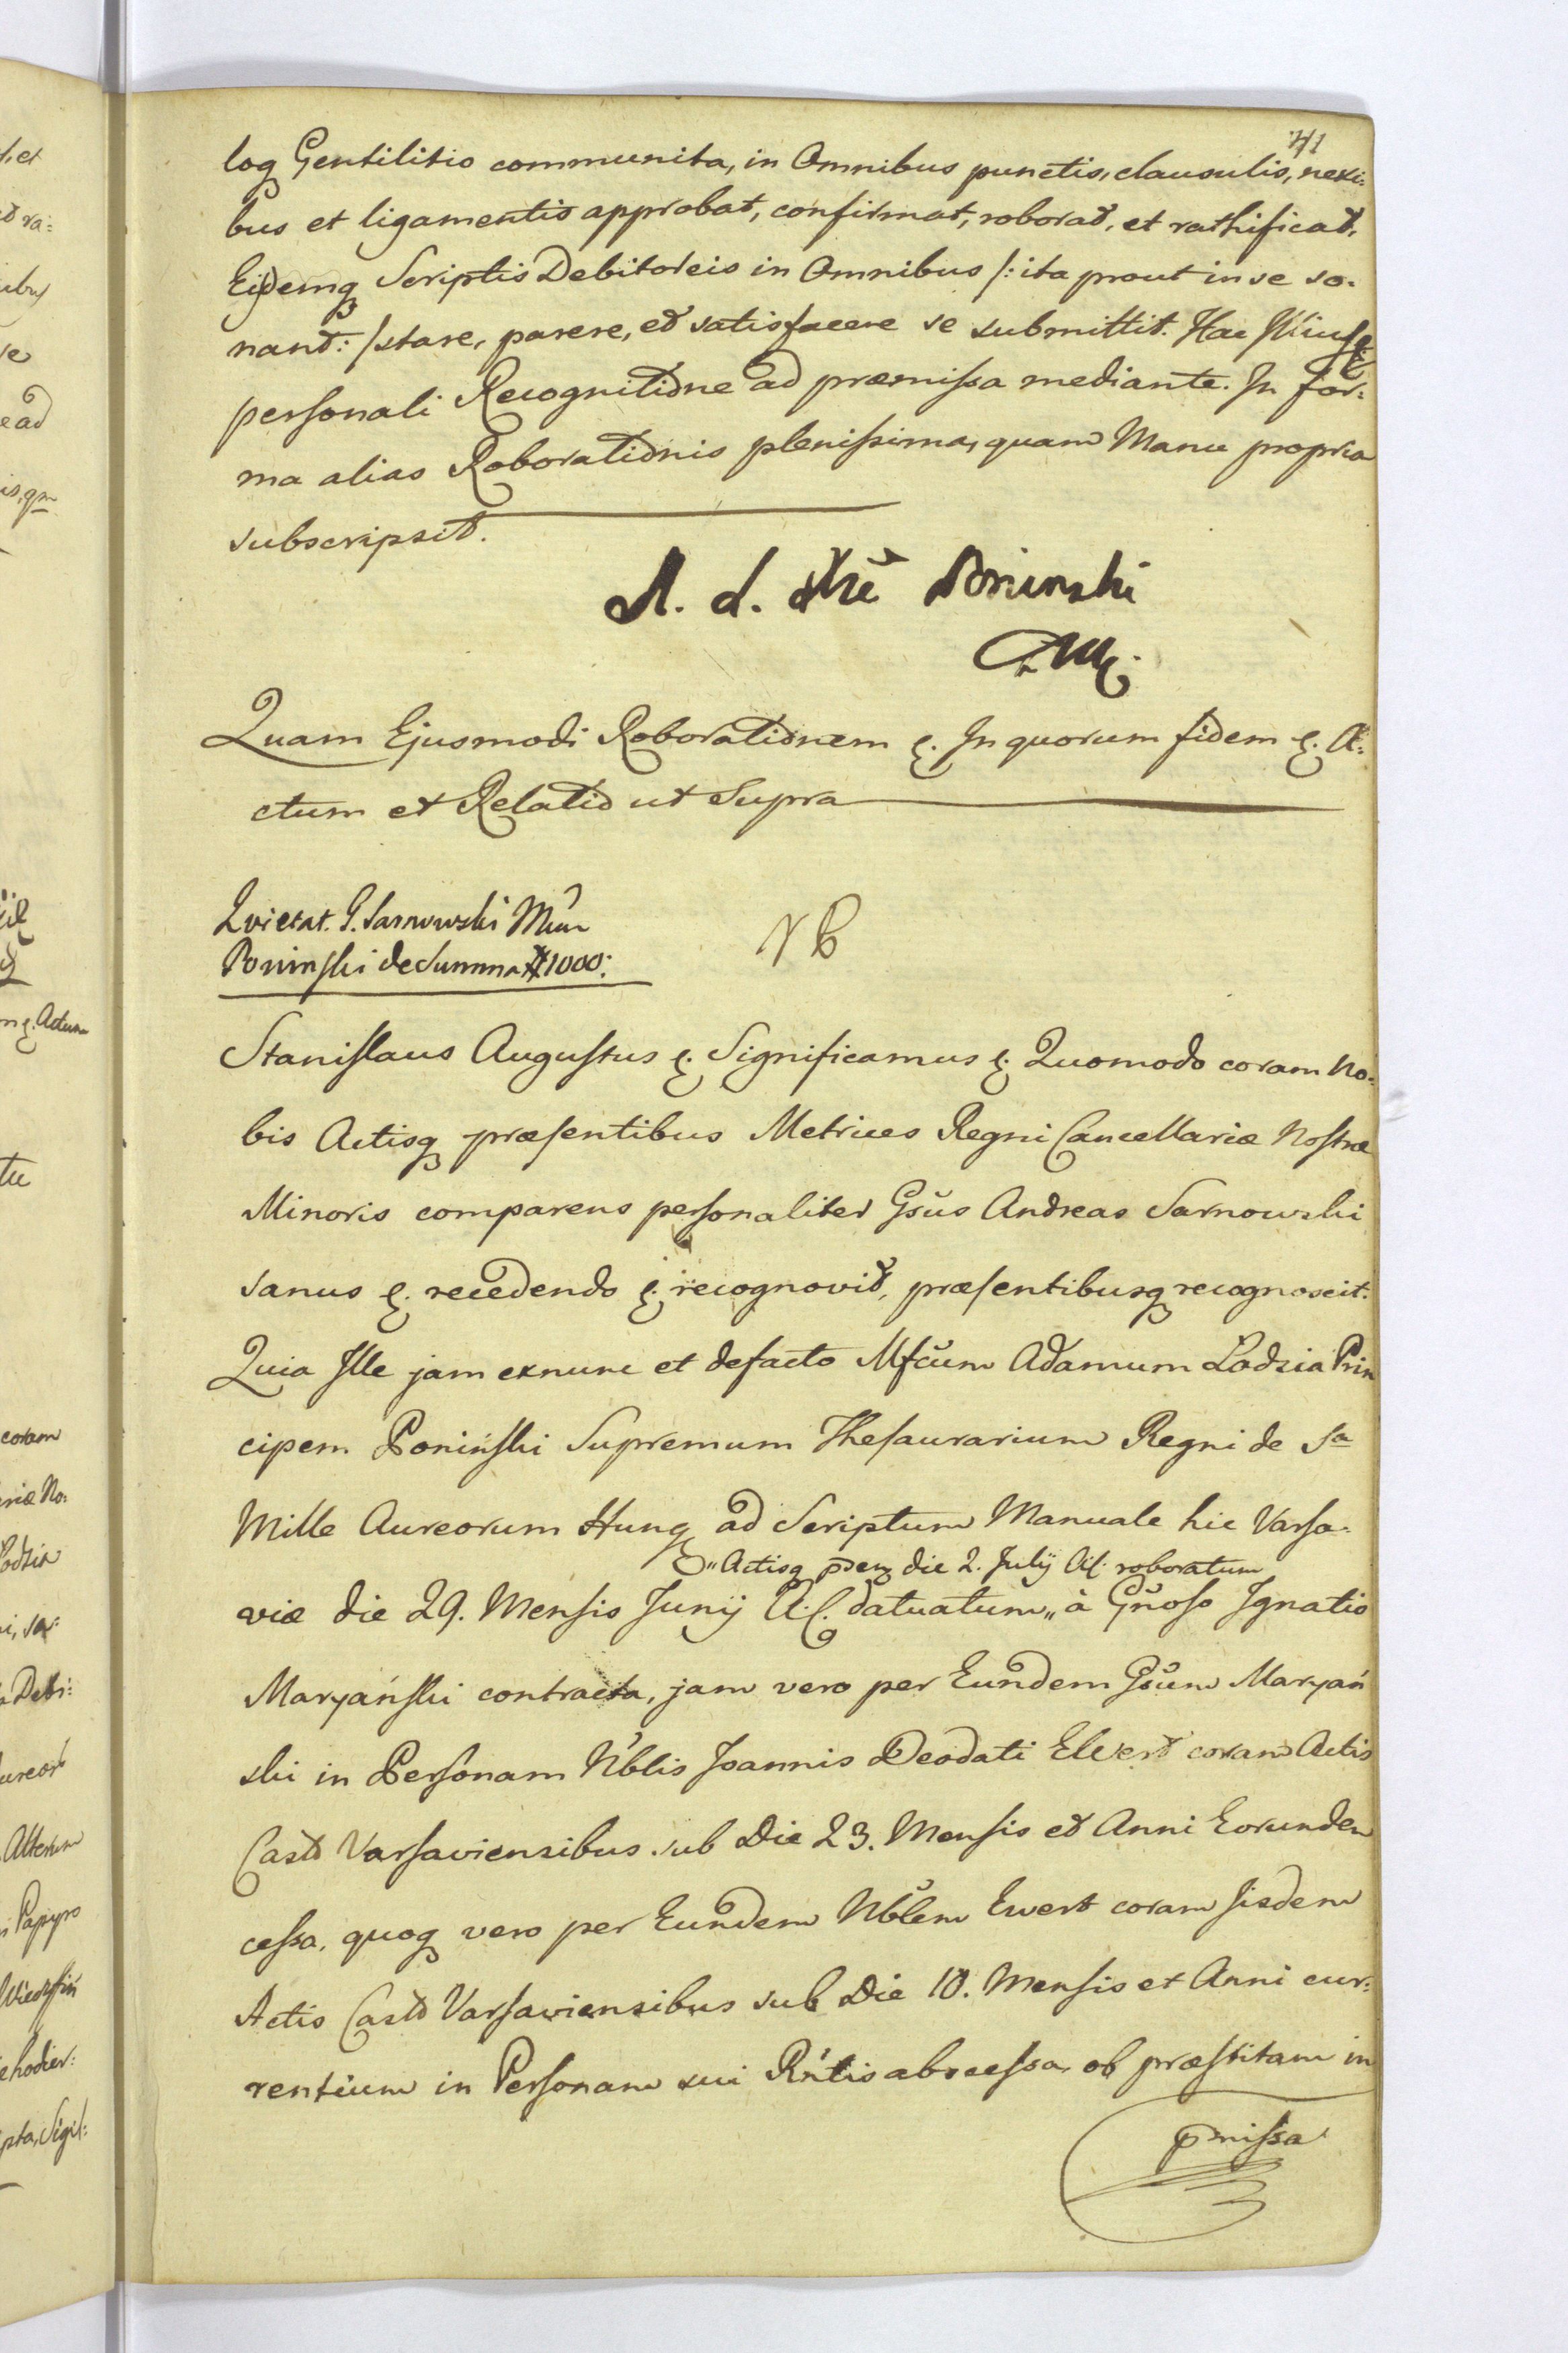 71
loq Gentilitio communita, in Omnibus punctis, clausulis, nexi:
bus et ligamentis approbat, confirmat, roborat, et rathificat,
Eisdemq Scriptis Debitoreis in Omnibus /: ita prout in se so.
nant: / stare, parere, et satisfacere se submittit. Hac
personali Recognitione ad præmissa mediante. In for:
ma alias Roborationis plenissima, quam Manu propria
subscripsit.
Poninski
Quam Ejusmodi Roborationem &. In quorum fidem &. A:
ctum et Relatio ut Supra
Qvietat. G. Sarnowski
Poninski de Summa # 1000:
Stanislaus Augustus &. Significamus &. Quomodo coram No:
bis Actisq præsentibus Metrices Regni Cancellariæ Nostræ
Minoris comparens personaliter Gsus Andreas Sarnowski
sanus &. recedendo &. recognovit, præsentibusq recognoscit.
Quia Ille jam exnunc et defacto Mfcum Adamum Lodzia Prin
cipem Poninski Supremum Thesaurarium Regni de Sa
Mille Aureorum Hung ad Scriptum Manuale hic Varsa:
"Actisq die 2. Julij A.C. roboratum
viæ die 29. Mensis Junij A.C. datuatum„ à Gnoso Ignatio
Maryański contracta, jam vero per Eundem Gsum Maryań
ski in Personam Nblis Joannis Deodati Elvert coram Actis
Cast Varsaviensibus sub Die 23. Mensis et Anni Eorunden
cessa, quoq vero per Eundem Nblem Ewert coram Iisdem
Actis Cast Varsaviensibus sub Die 10. Mensis et Anni cur:
rentium in Personam sui Rntis abscessa, ob præstitam in
pmissa